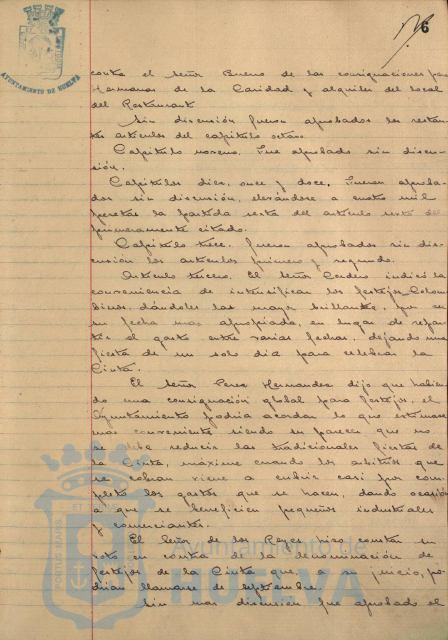 6
AYUNTAMIENTO DE HUELVA
contra el señor Bueno de las consignaciones para
Hermanas de la Caridad y alquiler del local
del Restaurant
Sin discusión fueron aprobados los restan-
tes artículos del capítulo octavo.
Capítulo noveno. Fue aprobado sin discu-
sión.
Capítulos diez, once y doce. Fueron aproba-
dos sin discusión, elevándose a cuatro mil
pesetas la partida sexta del artículo sexto del
primeramente citado.
Capítulo trece. Fueron aprobados sin dis-
cusión los artículos primero y segundo.
Artículo tercero. El señor Cordero indicó la
conveniencia de intensificar los festejos Colom-
binos, dándoles la mayor brillantez, por ser
su fecha mas apropiada, en lugar de repar-
tir el gasto entre varias fechas, dejando una
fiesta de un solo día para celebrar la
Cinta.
El señor Perez Hernandez dijo que habien-
do una consignación global para festejos, el
Ayuntamiento podría acordar lo que estimase
mas conveniente siendo su parecer que no
se debe reducir las tradicionales fiestas de
la Cinta, máxime cuando los arbitrios que
se cobran viene a cubrir casi por com-
pleto los gastos que se hacen, dando ocasión
a que se beneficien pequeños industriales
y comerciantes.
El señor de los Reyes hizo constar su
voto en contra de la denominación de
festejos de la Cinta que, a su juicio, po-
drían llamarse de septiembre.
Sin mas discusión fue aprobado el
PORTUS MARIS
Ayuntamiento de
HUELVA